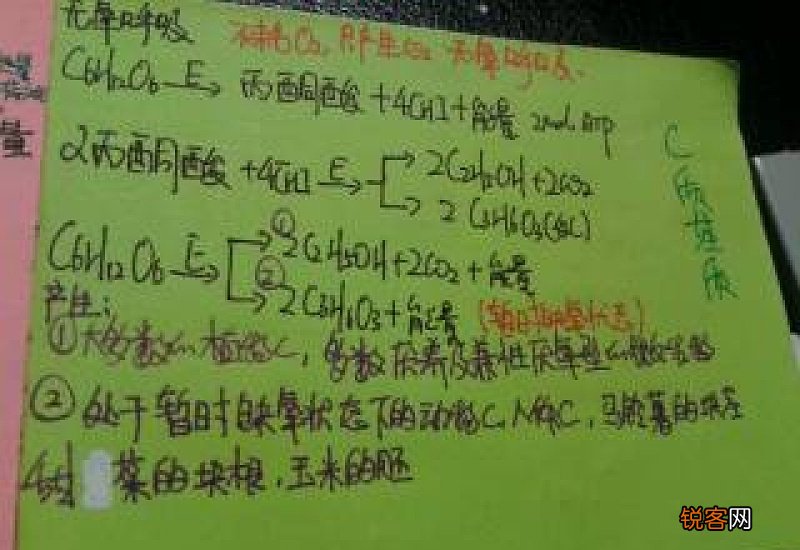 无氧呼吸 不消耗O₂, 只产生CO₂ 无氧呼吸.
C6H12O6 E→ 丙酮酸+4[H]+能量 2mol ATP
2丙酮酸+4[H] E→ →2C2H5OH+2CO2
→2C3H6O3
C6H12O6 E→ ①→2C2H5OH+2CO2+能量
②→2C3H6O3+能量 (暂时缺氧状态)
产生:
①大多数 植物C, 多数 厌养及兼性厌氧型
②处于暂时缺氧状态下的动物C, 人体C, 马铃薯的块茎
菜的块根, 玉米的胚
C质基质
量
锐客网